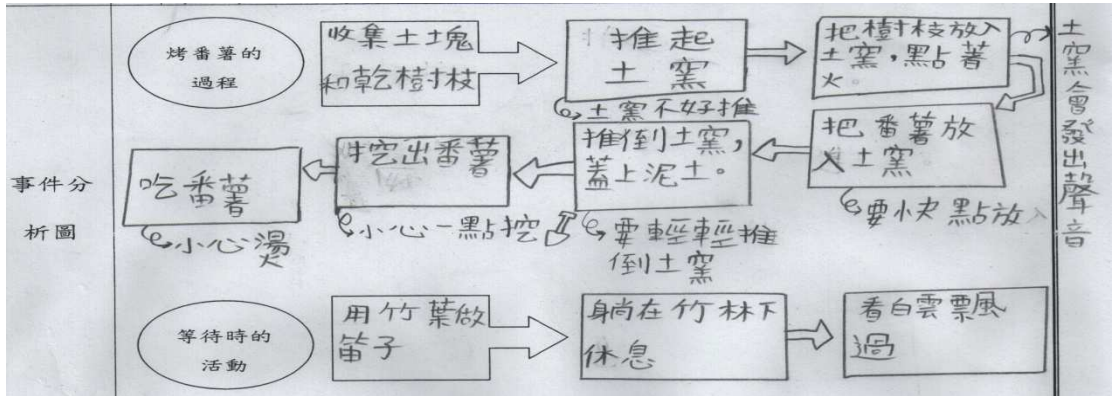 事件分
析圖
烤番薯的
過程
收集土塊
和乾樹枝
推起
土窯
土窯不好推
把樹枝放入
土窯,點著
火。
土窯會發出聲音
把番薯放
入土窯
要快點放入
推倒土窯,
蓋上泥土。
要輕輕推
倒土窯
挖出番薯
小心一點挖
吃番薯
小心燙
等待時的
活動
用竹葉做
笛子
躺在竹林下
休息
看白雲飄
過